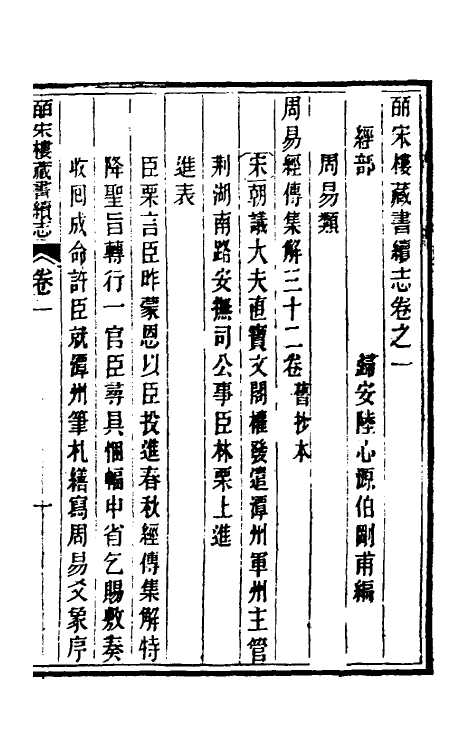 皕宋樓藏書續志卷之一
歸安陸心源伯剛甫編
經部
周易類
周易經傳集解三十二卷 舊抄本
宋朝議大夫直寶文閣權發遣潭州軍州主管
荆湖南路安撫司公事臣林栗上進
進表
臣栗言臣昨蒙恩以臣投進春秋經傳集解特
降聖旨轉行一官臣尋具悃愊申省乞賜敷奏
收囘成命許臣就潭州筆札繕寫周易爻象序
皕宋樓藏書續志 卷一 十